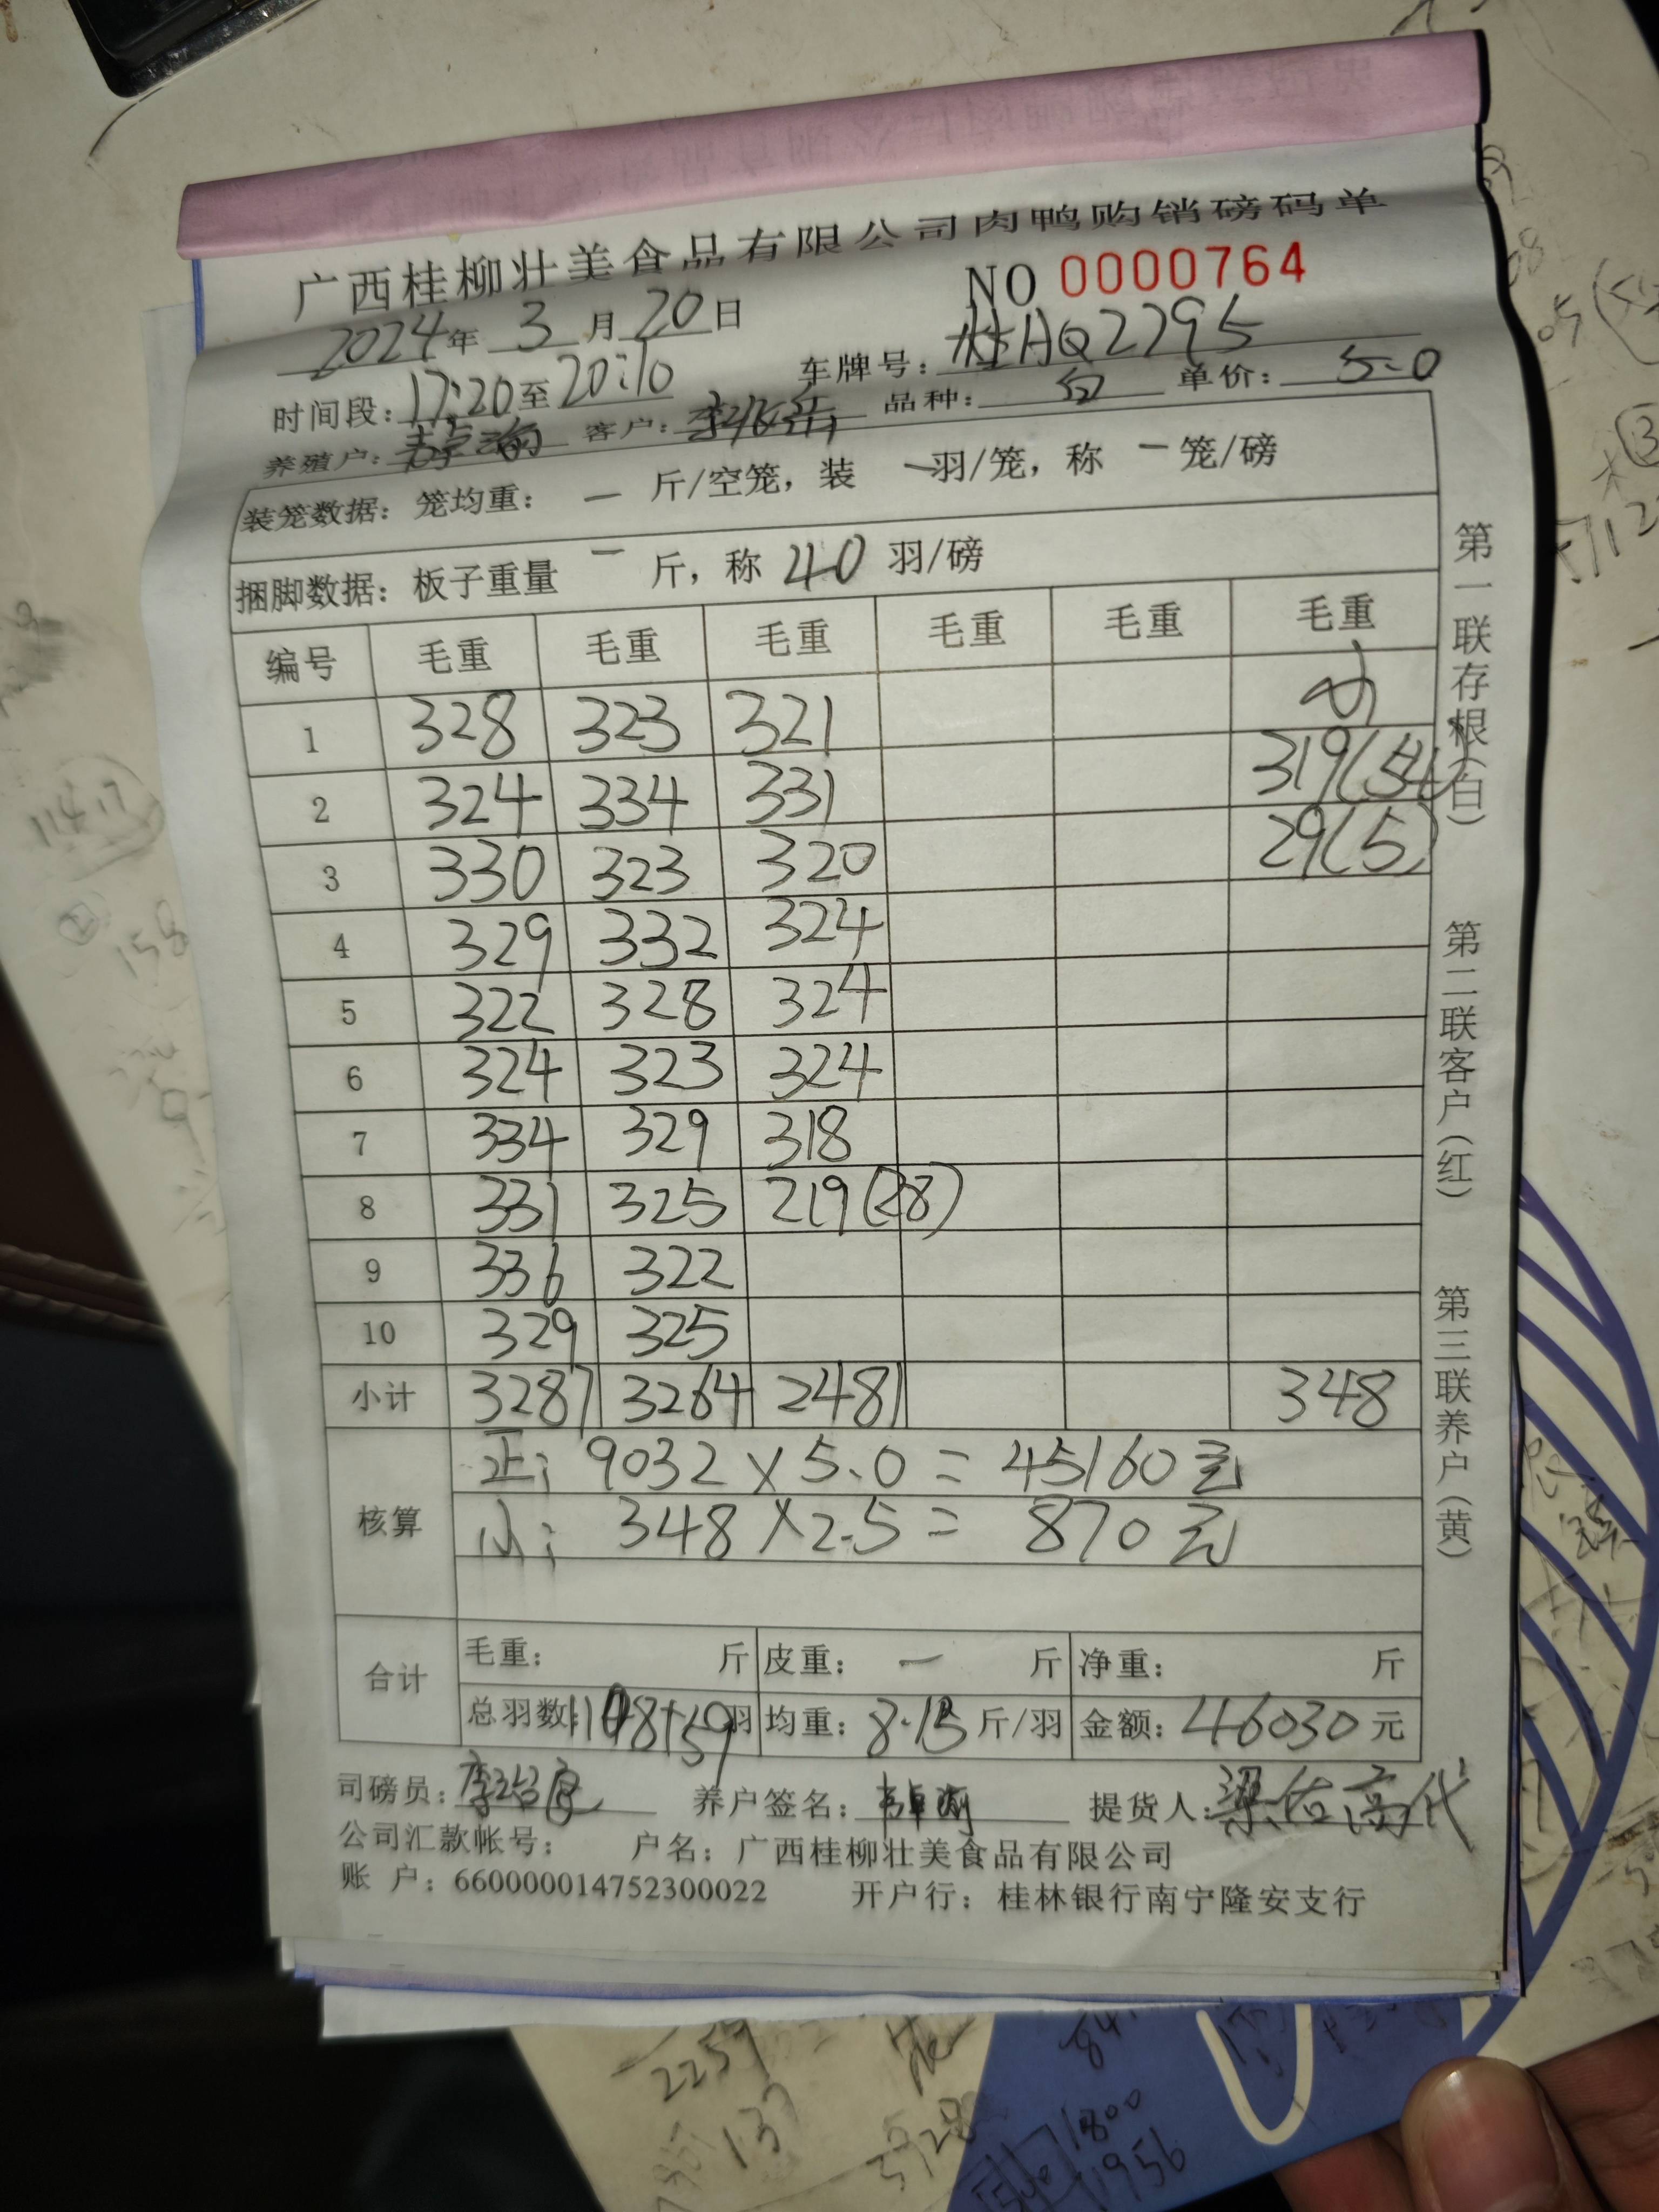 广西桂柳壮美食品有限公司肉鸭购销磅码单
NO 0000764
2024年 3 月 20 日
时间段：17:20 至 20:10 车牌号：桂AQ2795
养殖户： 客户： 品种： 单价：5.0
装笼数据：笼均重： — 斤/空笼，装 — 羽/笼，称 — 笼/磅
捆脚数据：板子重量 — 斤，称 40 羽/磅
编号 毛重 毛重 毛重 毛重 毛重 毛重
1 328 323 321 小
2 324 334 331 319(54)
3 330 323 320 29(5)
4 329 332 324
5 322 328 324
6 324 323 324
7 334 329 318
8 331 325 219(28)
9 336 322
10 329 325
小计 3287 3264 2481 348
核算 正：9032×5.0=45160元
小：348×2.5=870元
合计 毛重： 斤 皮重： — 斤 净重： 斤
总羽数： 羽 均重： 斤/羽 金额：46030元
司磅员： 养户签名： 提货人：梁佑高代
公司汇款帐号： 户名：广西桂柳壮美食品有限公司
账 户：660000014752300022 开户行：桂林银行南宁隆安支行
第一联存根(白) 第二联客户(红) 第三联养户(黄)
11417
158
2259
137
1800
1956